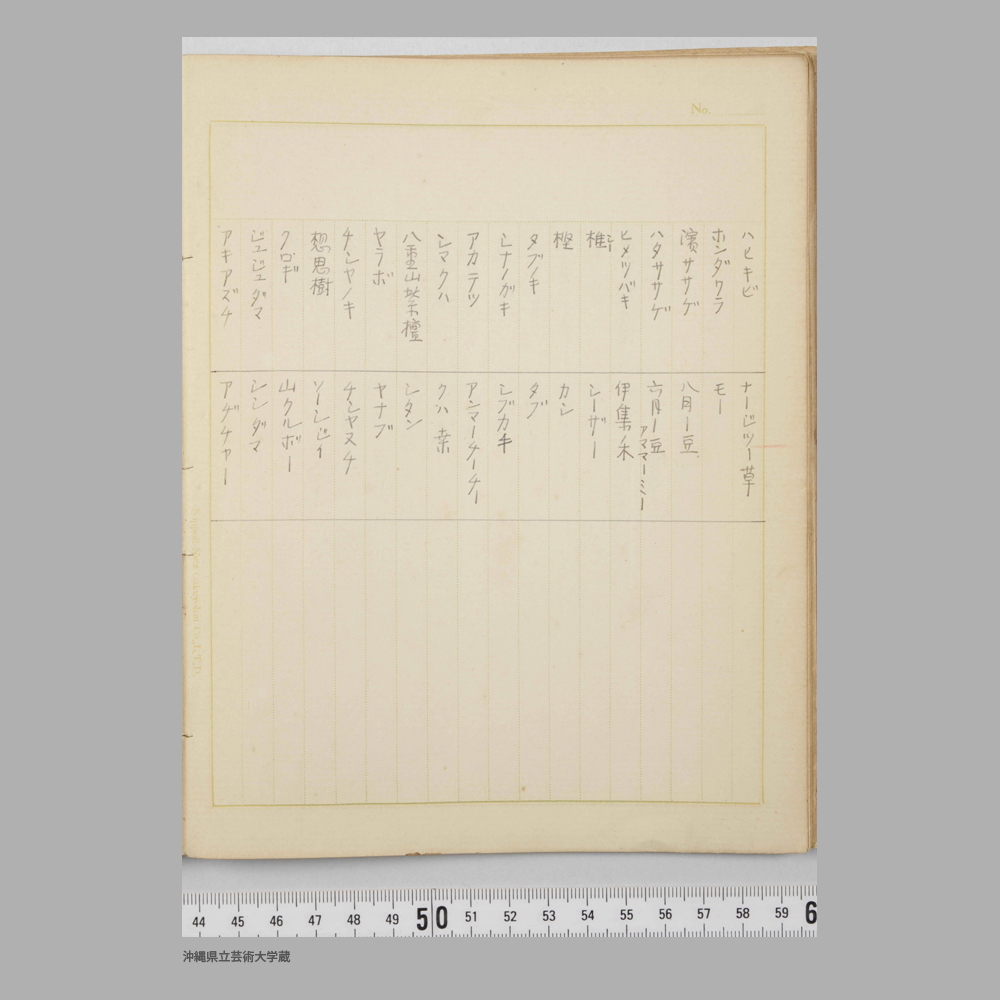 No.
ハヒキビ ナージツー草
ホンダワラ モー
濱ササゲ 八月ー豆
ハタササゲ 六月ー豆 アママーミー
ヒメツバキ 伊集ノ木
椎シー シーザー
樫 カシ
タブノキ タブ
シナノガキ シブカキ
アカテツ アンマーチーチー
シマクハ クハ 桑
八重山紫檀 シタン
ヤラボ ヤナブ
チシヤノキ チシヤヌチ
想思樹 ソーシジイ
クロギ 山クルボー
ジユジユダマ シシダマ
アキアズチ アヂチャー
44 45 46 47 48 49 50 51 52 53 54 55 56 57 58 59 6
沖縄県立芸術大学蔵